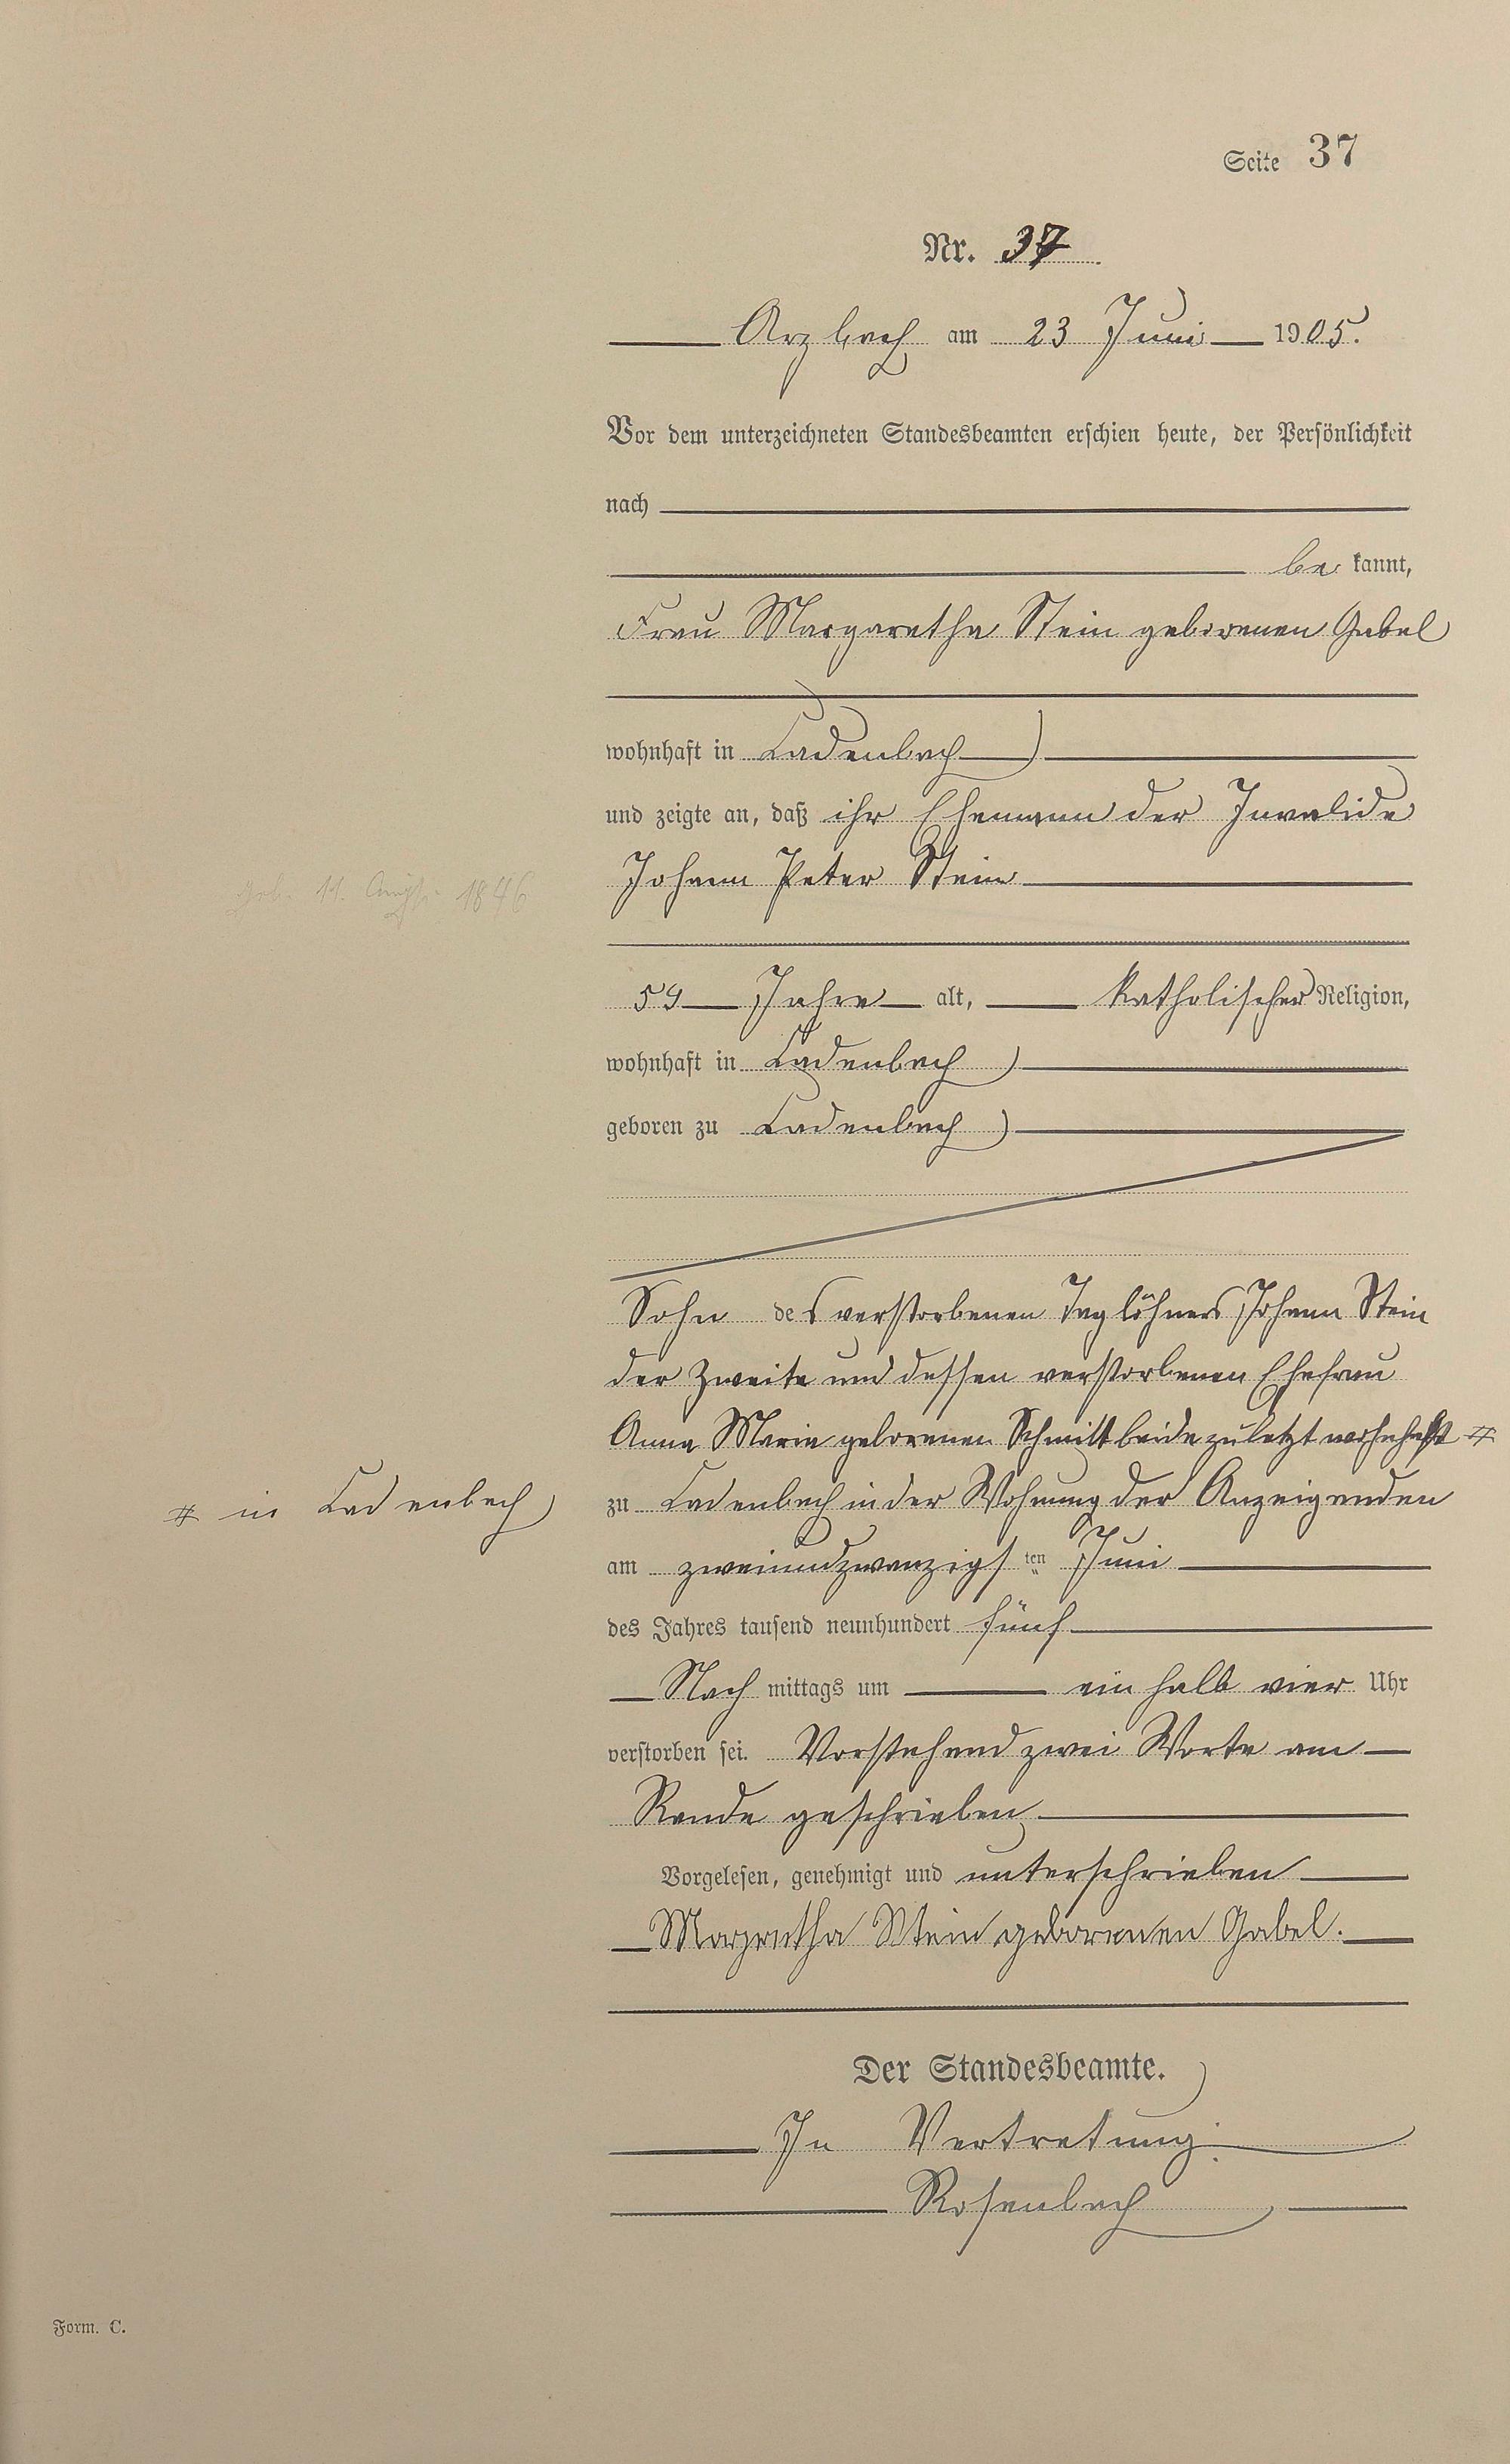 Seite 37
Nr. 37
Arzbach am 23 Juni 1905.
Vor dem unterzeichneten Standesbeamten erschien heute, der Persönlichkeit
nach
be kannt,
Frau Margaretha Stein geborenen Gabel
wohnhaft in Cadenbach
und zeigte an, daß ihr Ehemann der Invalide
Johann Peter Stein
geb. 11. 1846
59 Jahre alt, katholischer Religion,
wohnhaft in Cadenbach
geboren zu Cadenbach
Sohn des verstorbenen Taglöhners Johann Stein
der Zweite und dessen verstorbenen Ehefrau
Anna Maria geborenen Schmitt beide zuletzt wohnhaft #
# in Cadenbach
zu Cadenbach in der Wohnung der Anzeigenden
am zweiundzwanzigsten Juni
des Jahres tausend neunhundert fünf
Nach mittags um ein halb vier Uhr
verstorben sei. Vorstehend zwei Worte am
Rande geschrieben
Vorgelesen, genehmigt und unterschrieben
Margretha Stein geborenen Gabel.
Der Standesbeamte.
In Vertretung.
Rosenbach
Form. C.